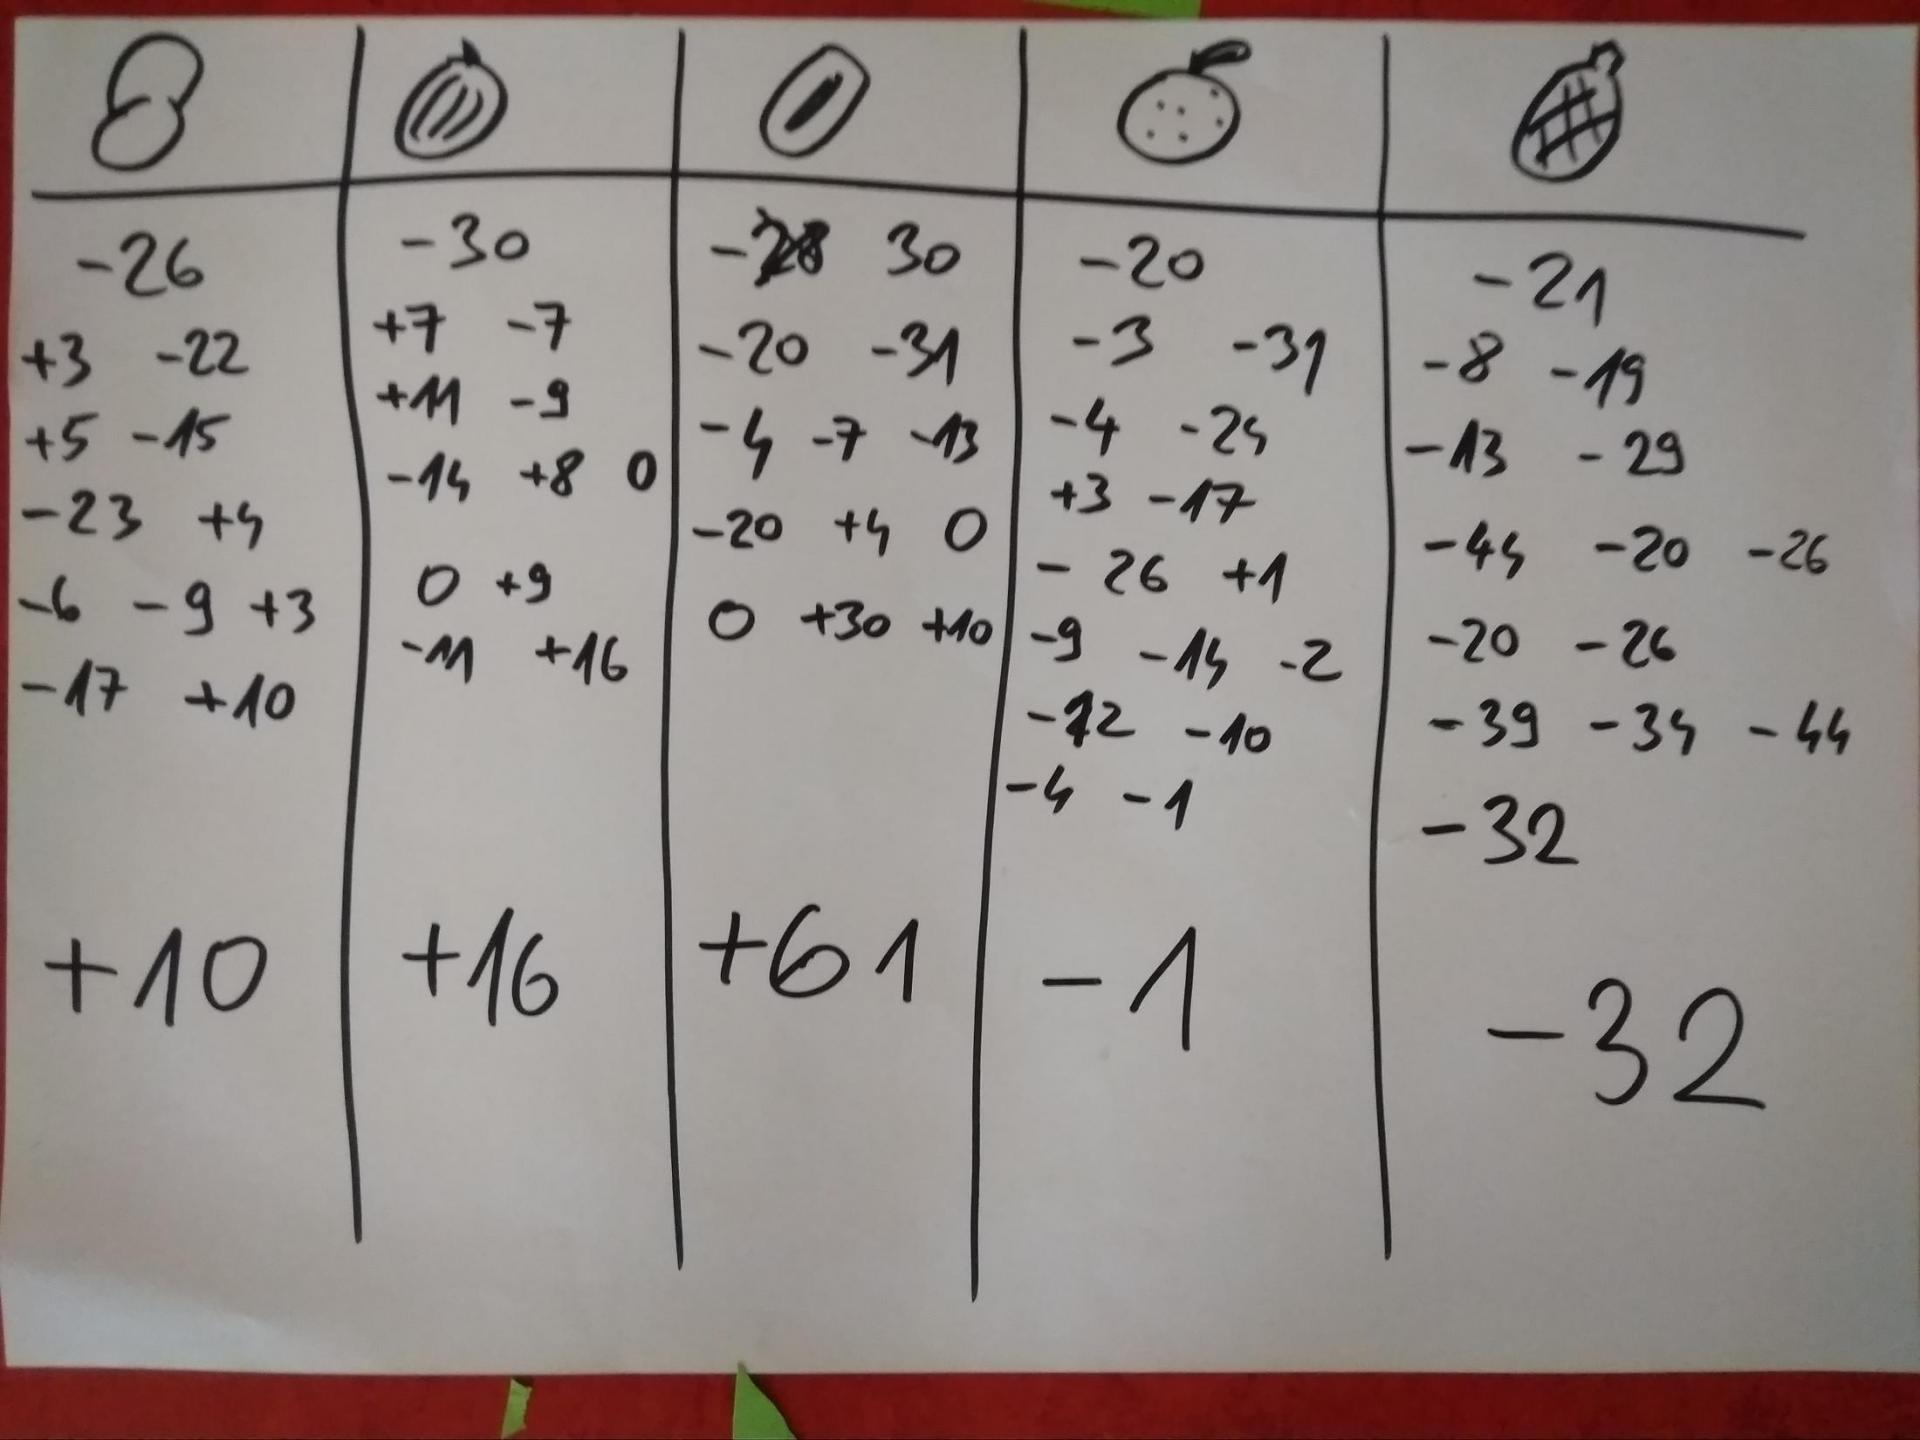 -26
+3 -22
+5 -15
-23 +4
-6 -9 +3
-17 +10
+10
-30
+7 -7
+11 -9
-14 +8 0
0 +9
-11 +16
+16
-28 30
-20 -31
-4 -7 -13
-20 +4 0
0 +30 +10
+61
-20
-3 -31
-4 -24
+3 -17
- 26 +1
-9 -14 -2
-12 -10
-4 -1
-1
-21
-8 -19
-13 -29
-44 -20 -26
-20 -26
-39 -34 -44
-32
-32